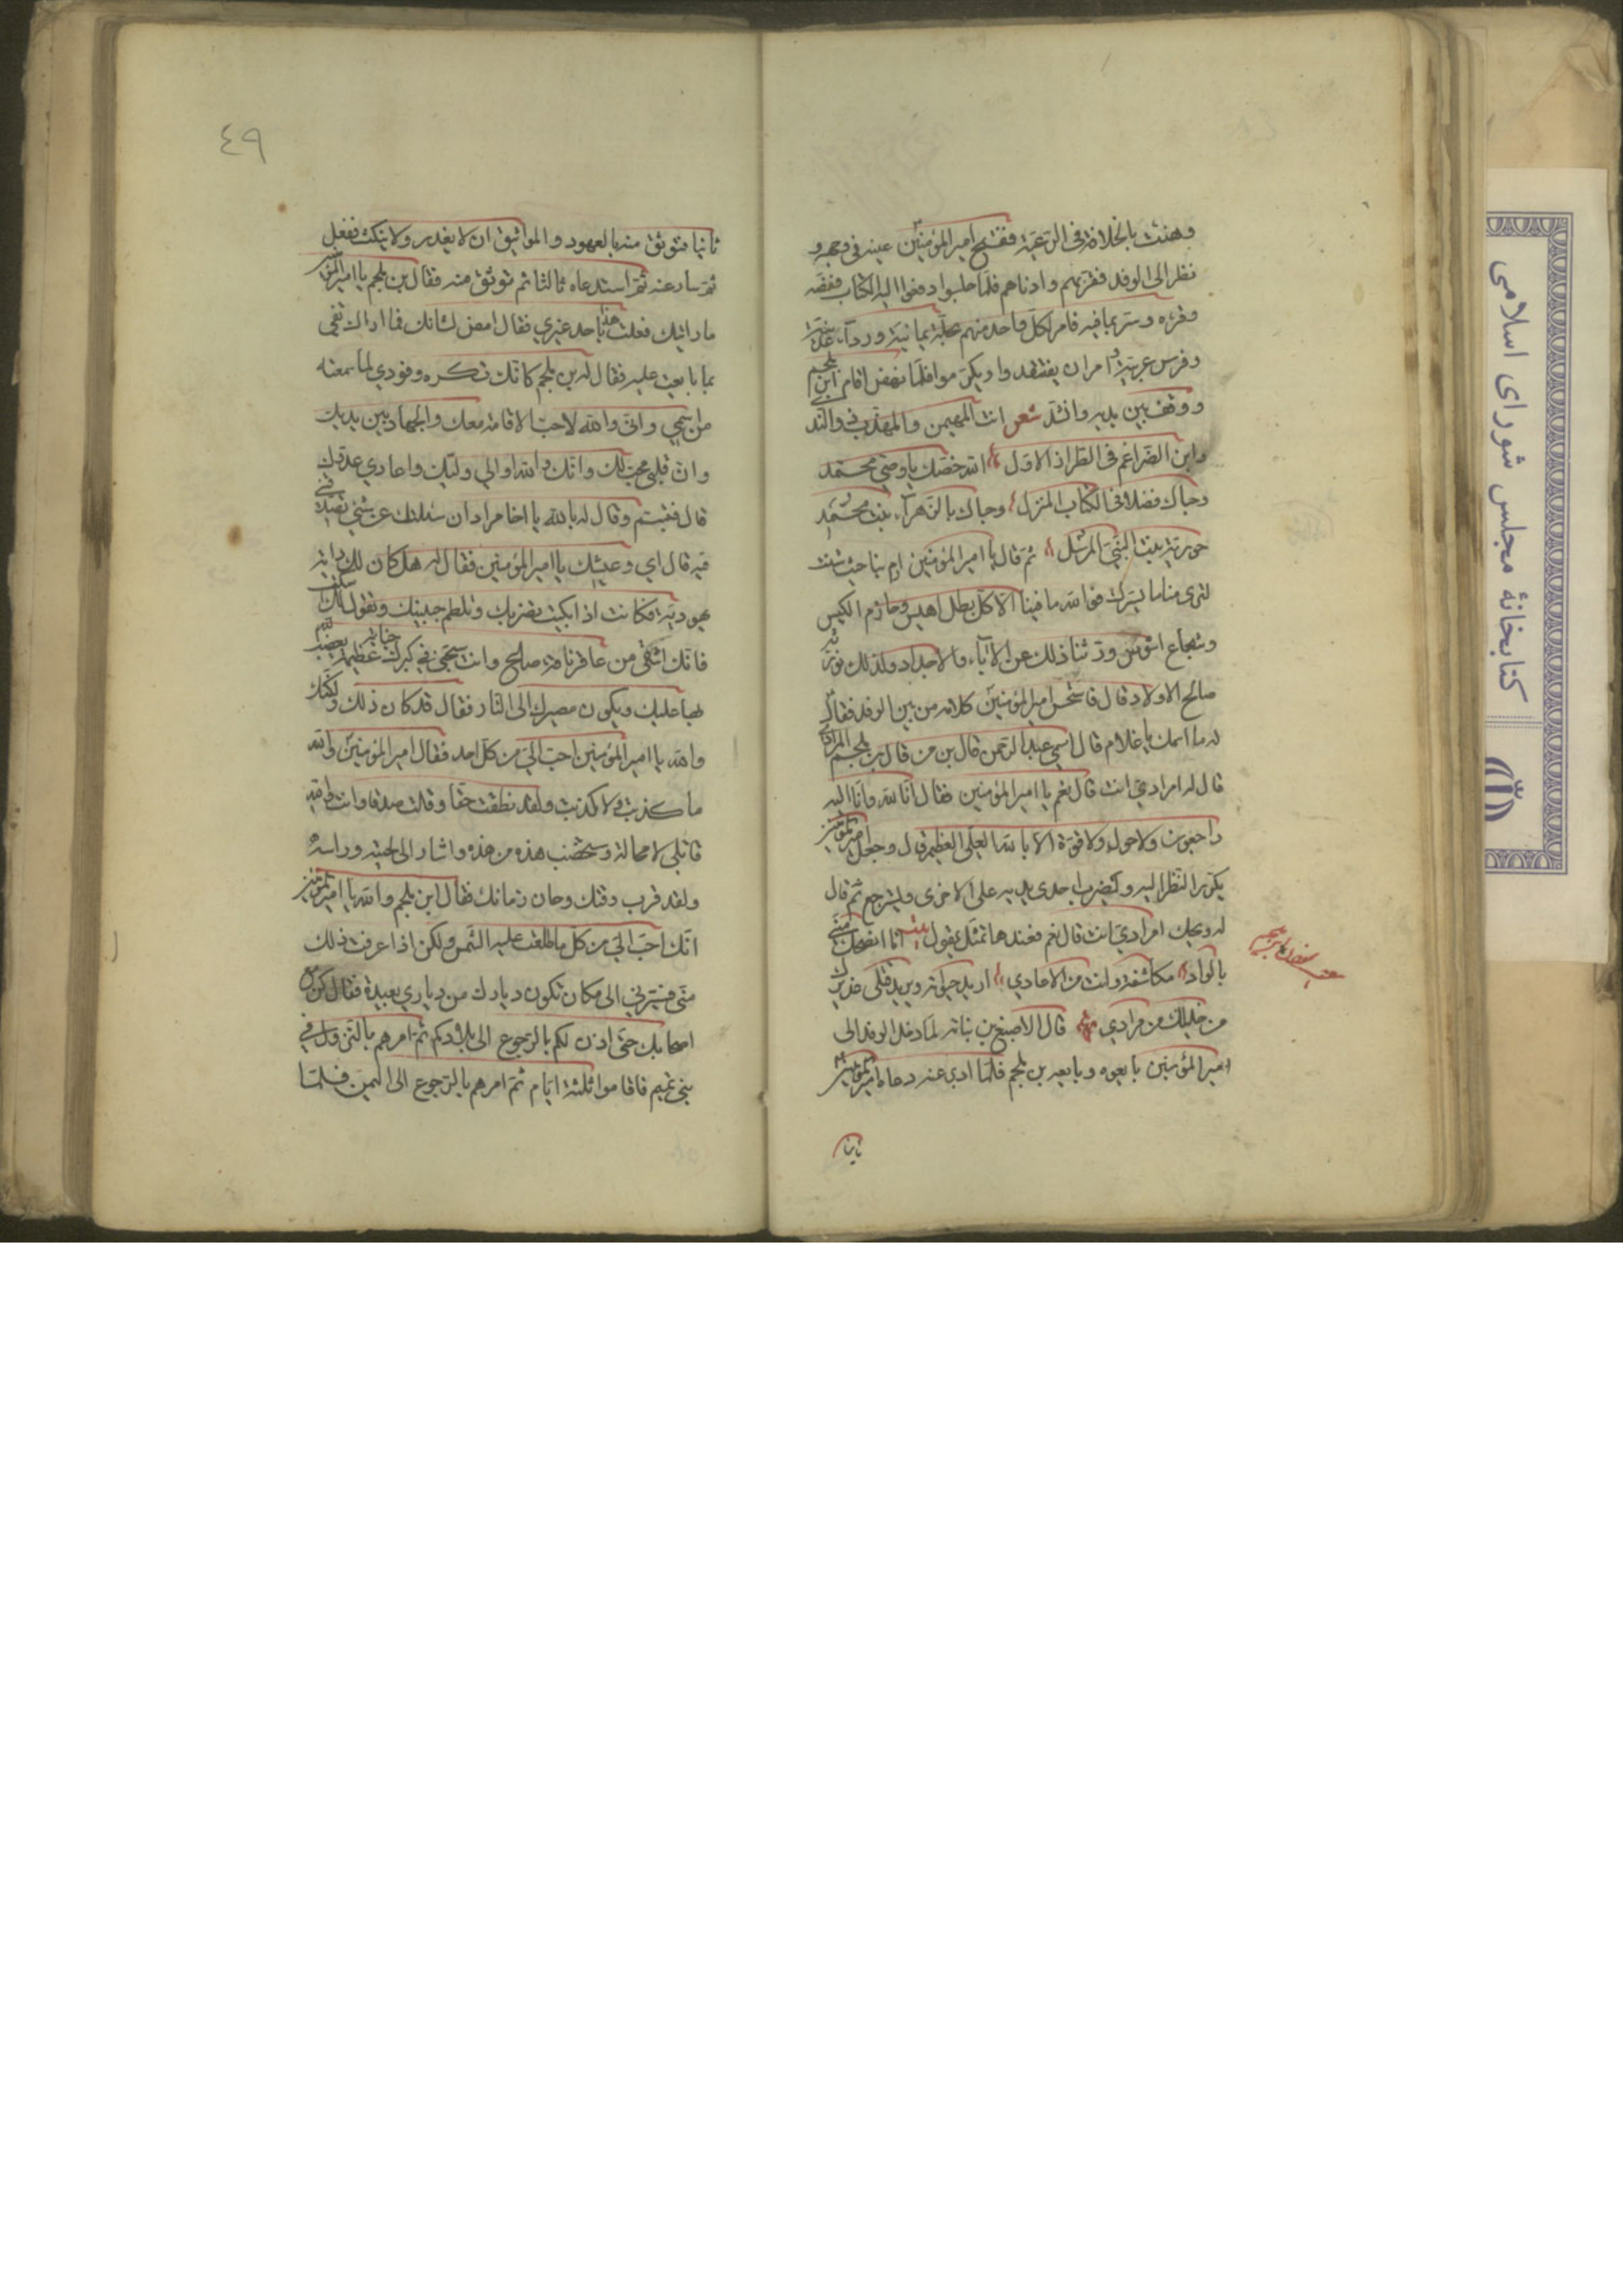 وهنئت بالخلافة في الرعية ففتح امير المؤمنين عينه في وجهه و
نظر الى الوفد فقربهم وادناهم فلما جلسوا دفعوا اليه الكتاب ففضه
وقرءه وسر بما فيه فامر لكل واحد منهم بحلة يمانية ورداء عدنية
وفرس عربية وامران يفتقدوا ويكرموا فلما نهض اقام ابن ملجم
ووقف بين يديه وانشد شعر انت المهيمن والمهذب ذو الندى
وابن الضراغم في الطراز الاول الله خصك يا وصي محمد
وحباك فضلا في الكتاب المنزل وحباك بالزهراء بنت محمد
حورية بنت النبي المرسل ثم قال يا امير المؤمنين ارم بنا حيث شئت
لترى منا ما يسرك فوالله ما فينا الا كل بطل اهيس وحازم اكيس
وشجاع اشوس ورثنا ذلك عن الاباء والاجداد وكذلك نورثه
صالح الاولاد قال فاستحسن امير المؤمنين كلامه من بين الوفد فقال
له ما اسمك يا غلام قال اسمي عبد الرحمن قال بن من قال بن ملجم المرادي
قال له امرادي انت قال نعم يا امير المؤمنين فقال انا لله وانا اليه
راجعون ولا حول ولا قوة الا بالله العلي العظيم قال وجعل امير المؤمنين
يكرر النظر اليه ويضرب احدى يديه على الاخرى ويسترجع ثم قال
له ويحك امرادي انت قال نعم فعندها تمثل يقول شعر انا انصحك مني
بالوداد مكاشفة وانت من الاعادي اريد حياته ويريد قتلي عذيرك
من خليلك من مرادي قال الاصبغ بن نباته لما دخل الوفد الى
امير المؤمنين بايعوه وبايعه بن ملجم فلما ادبر عنه دعاه امير المؤمنين
ثانيا
ثانيا فتوثق منه بالعهود والمواثيق ان لا يغدر ولا ينكث ففعل
ثم سار عنه ثم استدعاه ثالثا ثم توثق منه فقال بن ملجم يا امير المؤمنين
ما رايتك فعلت هذا باحد غيري فقال امض لشانك فما اراك تفي
بما بايعت عليه فقال له بن ملجم كانك تكره وفودي لما سمعته
من اسمي واني والله لاحب الاقامة معك والجهاد بين يديك
وان قلبي محب لك وانك والله اوالي وليك واعادي عدوك
قال فتبسم وقال له بالله يا اخا مراد ان سئلتك عن شيء تصدقني
فيه قال اي وعيشك يا امير المؤمنين فقال له هل كان لك داية
يهودية فكانت اذا بكيت تضربك وتلطم جبينك وتقول لك اسكت
فانك اشقى من عاقر ناقة صالح وانت ستجني في كبرك جناية عظيمة يغضب الله
بها عليك ويكون مصيرك الى النار فقال قد كان ذلك ولكنك
والله يا امير المؤمنين احب الي من كل احد فقال امير المؤمنين والله
ما كذبت ولا كذبت ولقد نطقت حقا وقلت صدقا وانت والله
قاتلي لا محالة وستخضب هذه من هذه واشار الى لحيته وراسه
ولقد قرب وقتك وحان زمانك فقال ابن ملجم والله يا امير المؤمنين
انك احب الي من كل ما طلعت عليه الشمس ولكن اذا عرفت ذلك
مني فسيرني الى مكان تكون ديارك من دياري بعيدة فقال كن مع
اصحابك حتى اذن لكم بالرجوع الى بلادكم ثم امرهم بالنزول في
بني تميم فاقاموا ثلثة ايام ثم امرهم بالرجوع الى اليمن فلما
٤٩
كتابخانهٔ مجلس شورای اسلامی